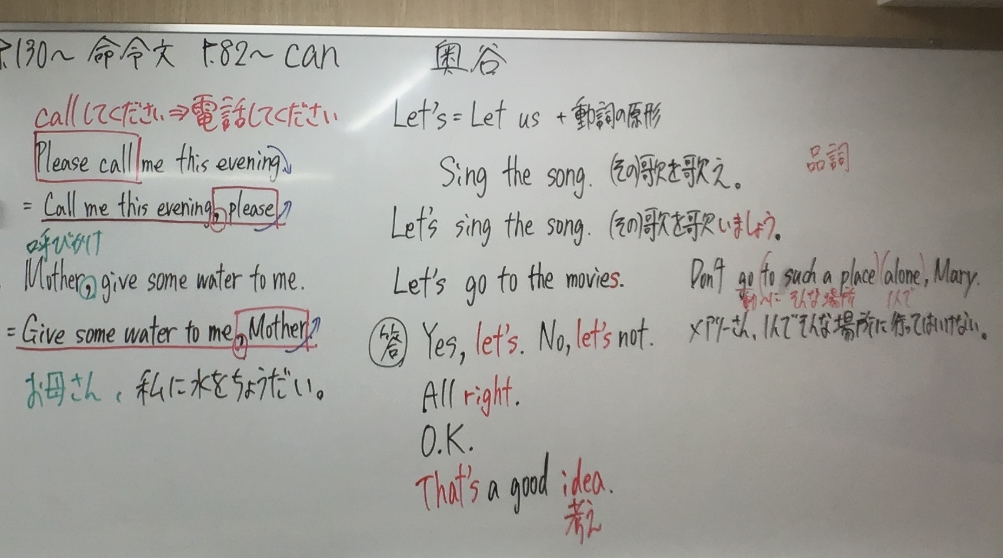 P.130~ 命令文 P.82~ can 奥谷
callしてください⇒電話してください
Please call me this evening.
= Call me this evening, please.
呼びかけ
Mother, give some water to me.
= Give some water to me, Mother.
お母さん、私に水をちょうだい。
Let's = Let us + 動詞の原形
Sing the song. (その)歌を歌え。
Let's sing the song. (その)歌を歌いましょう。
Let's go to the movies.
答 Yes, let's. No, let's not.
All right.
O.K.
That's a good idea.
考え
品詞
Don't go (to such a place) (alone), Mary.
そんな場所 1人で
メアリーさん、1人でそんな場所に行ってはいけない。